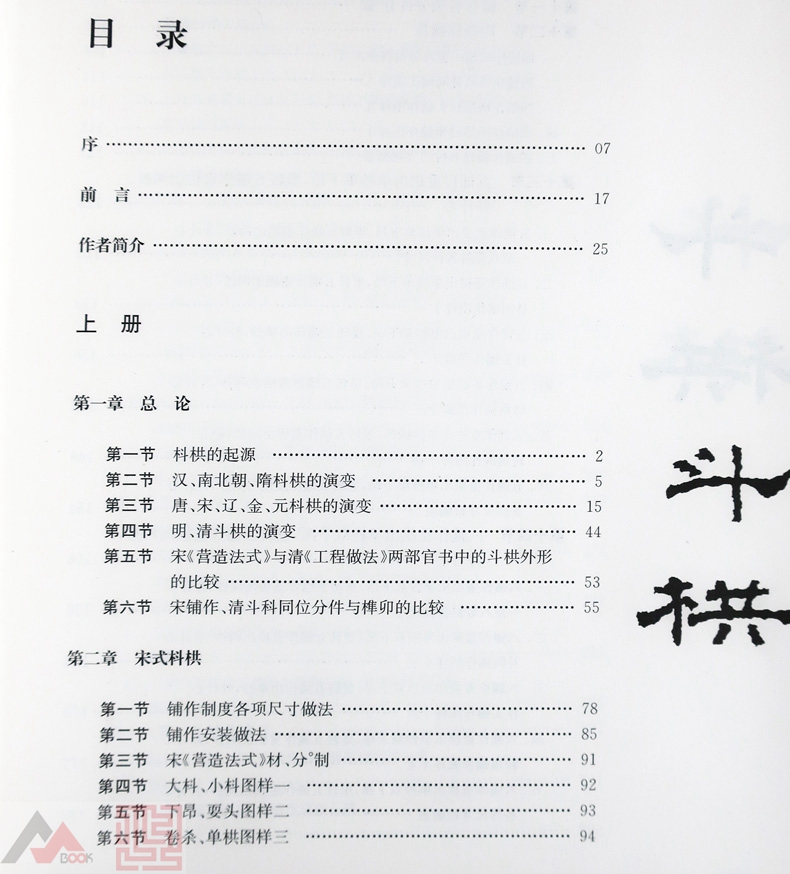 目 录
序 …… 07
前 言 …… 17
作者简介 …… 25
上 册
第一章 总 论
第一节 枓栱的起源 …… 2
第二节 汉、南北朝、隋枓栱的演变 …… 5
第三节 唐、宋、辽、金、元枓栱的演变 …… 15
第四节 明、清斗栱的演变 …… 44
第五节 宋《营造法式》与清《工程做法》两部官书中的斗栱外形
的比较 …… 53
第六节 宋铺作、清斗科同位分件与榫卯的比较 …… 55
第二章 宋式枓栱
第一节 铺作制度各项尺寸做法 …… 78
第二节 铺作安装做法 …… 85
第三节 宋《营造法式》材、分°制 …… 91
第四节 大枓、小枓图样一 …… 92
第五节 下昂、耍头图样二 …… 93
第六节 卷杀、单栱图样三 …… 94
斗
栱
BOOK